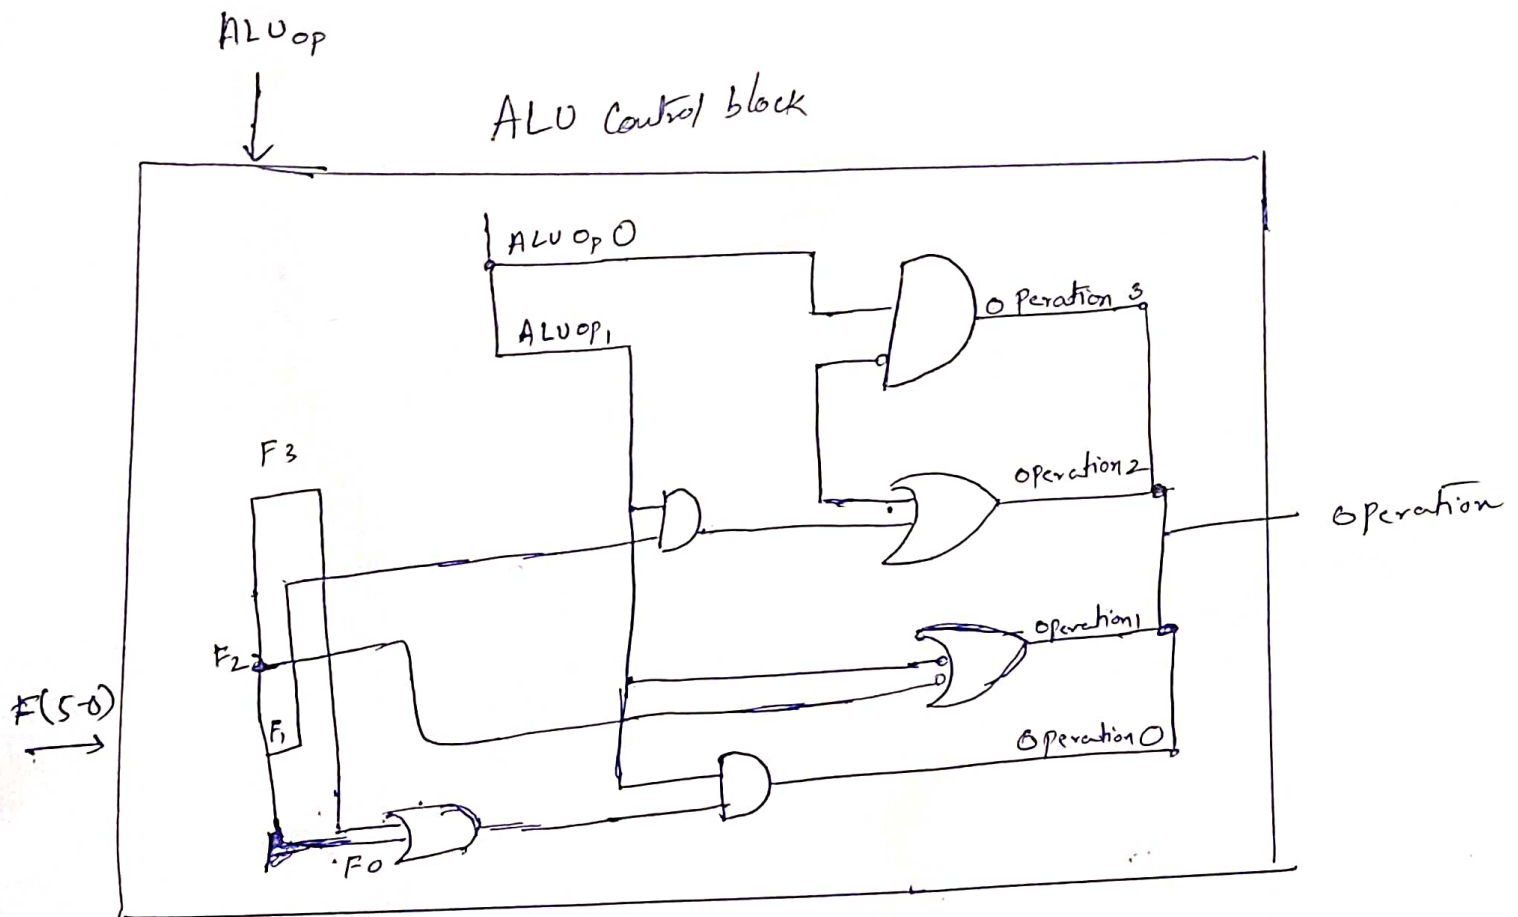 ALUop
ALU Control block
ALU Op 0
ALU OP1
Operation 3
F3
Operation2
Operation
F2
Operation1
F(5-0)
F1
Operation 0
F0